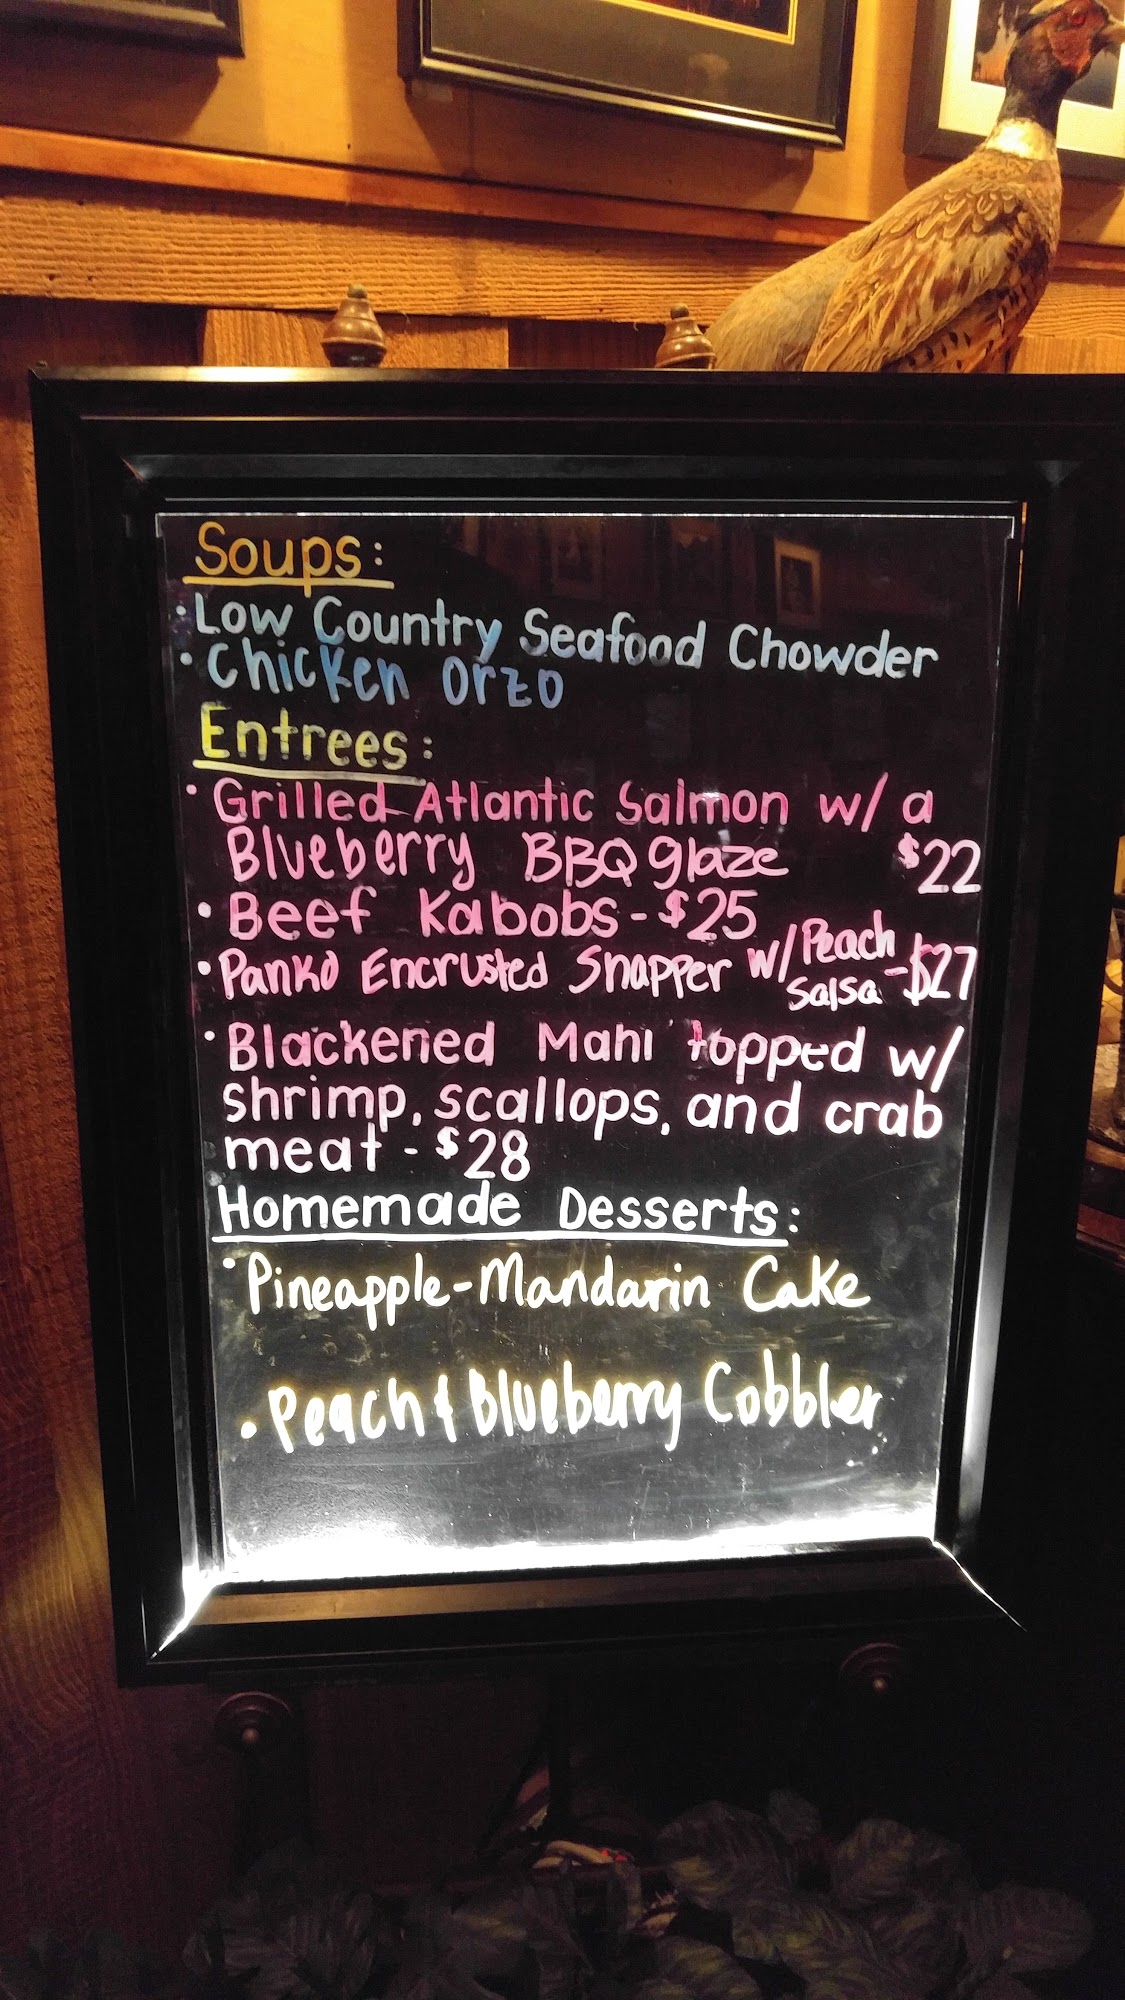 Soups:
• Low Country Seafood Chowder
• Chicken Orzo
Entrees:
• Grilled Atlantic Salmon w/ a
Blueberry BBQ glaze $22
• Beef Kabobs - $25
• Panko Encrusted Snapper w/ Peach
Salsa - $27
• Blackened Mahi topped w/
shrimp, scallops, and crab
meat - $28
Homemade Desserts:
• Pineapple-Mandarin Cake
• Peach & Blueberry Cobbler